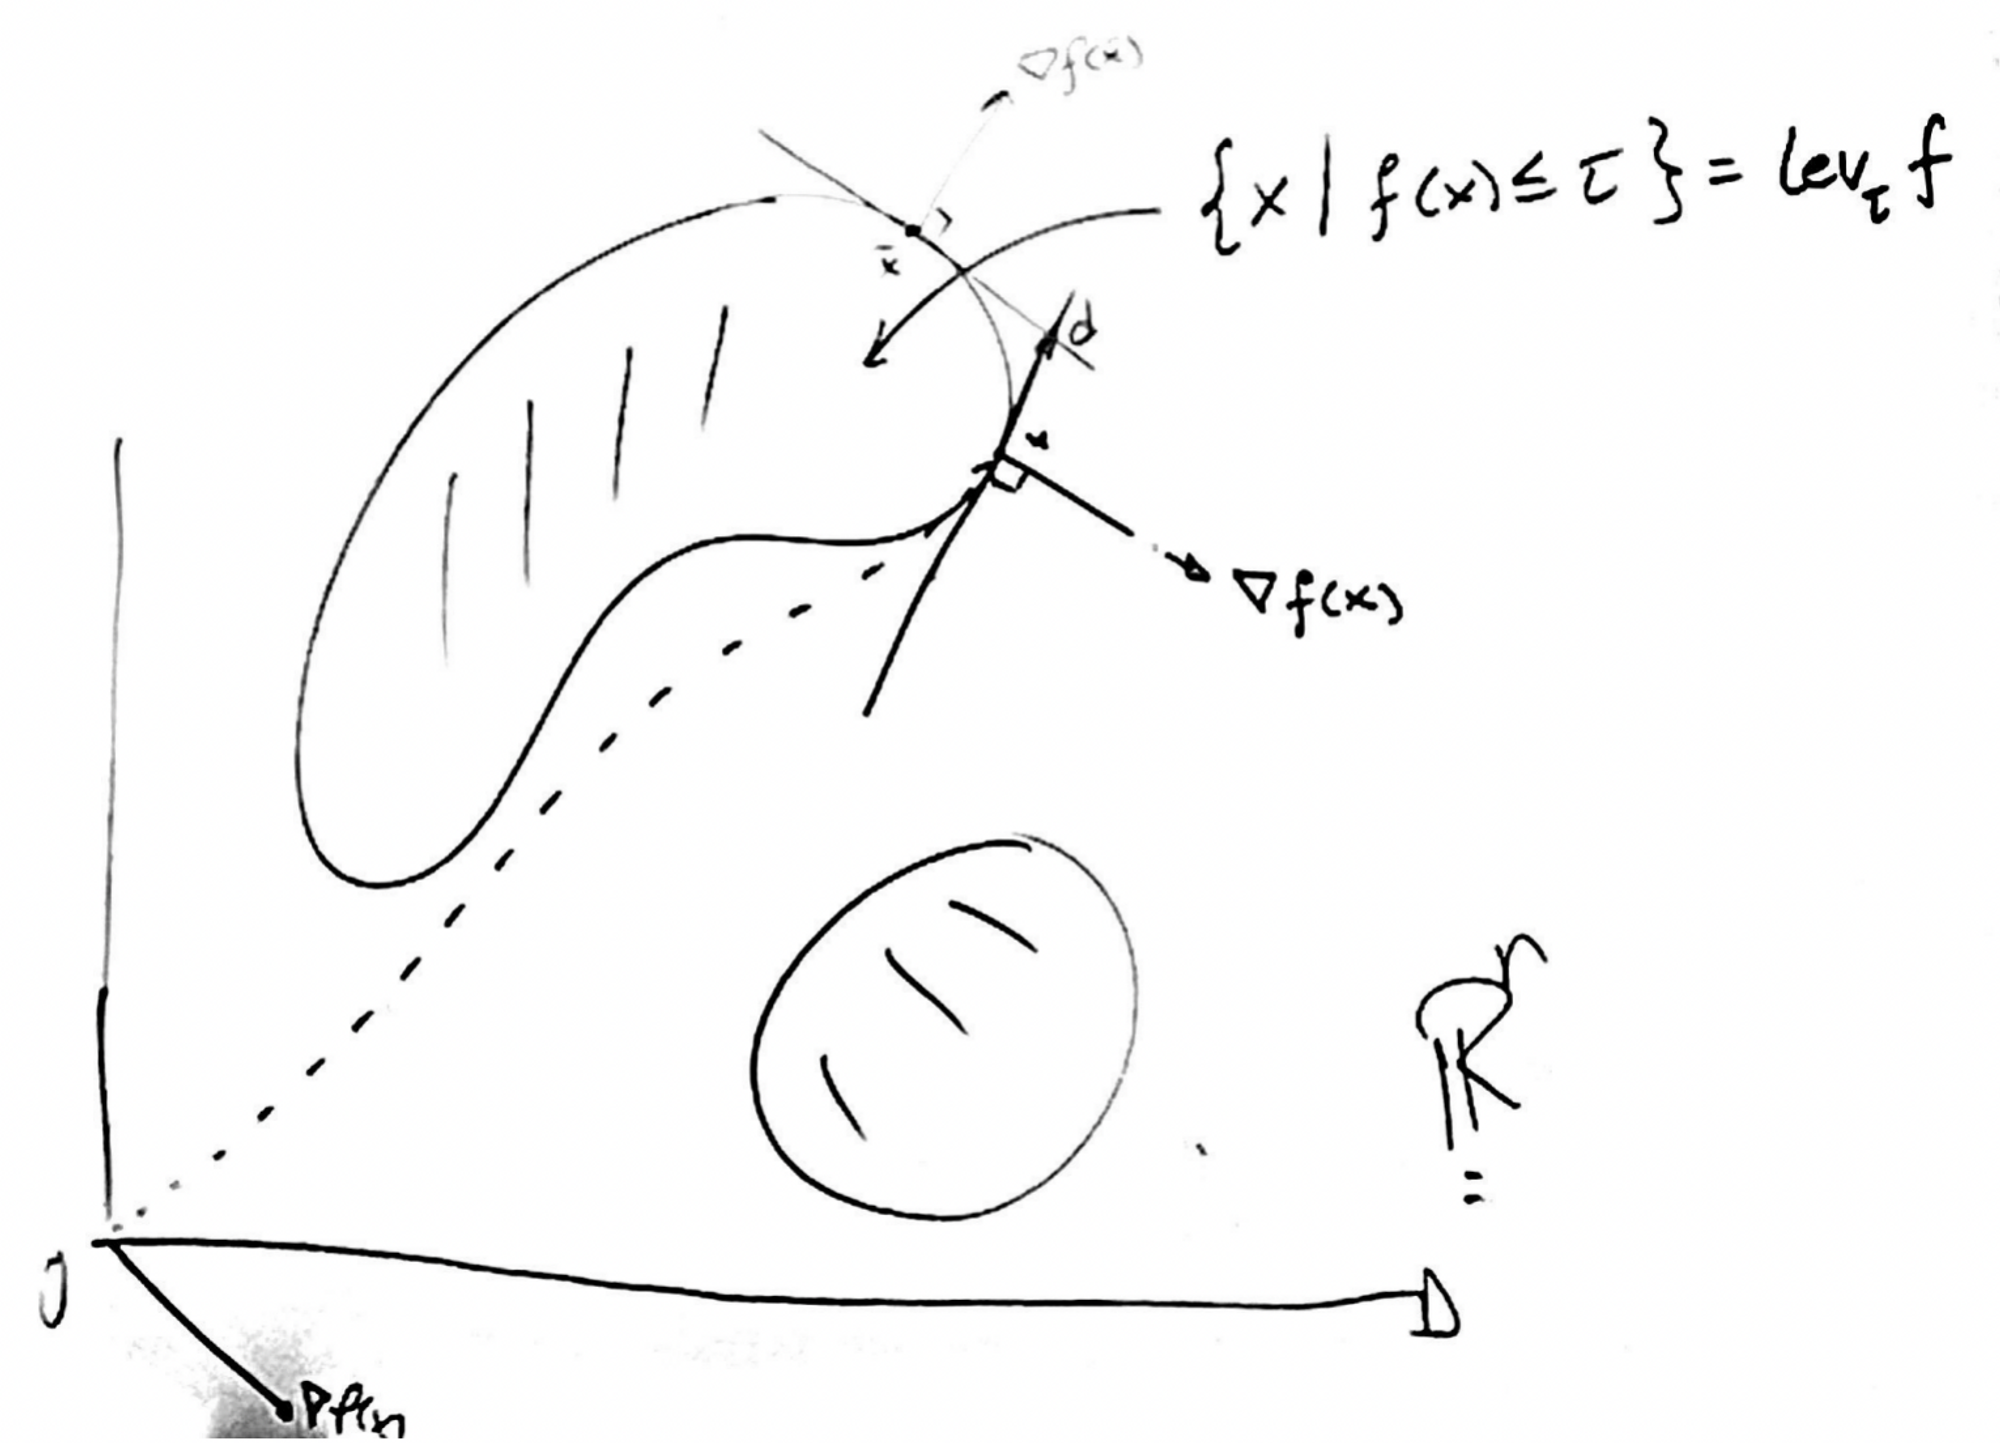 ∇f(x̄)
{x | f(x) ≤ τ} = lev_τ f
x̄
d
x
∇f(x)
ℝⁿ
=
0
∇f(x)